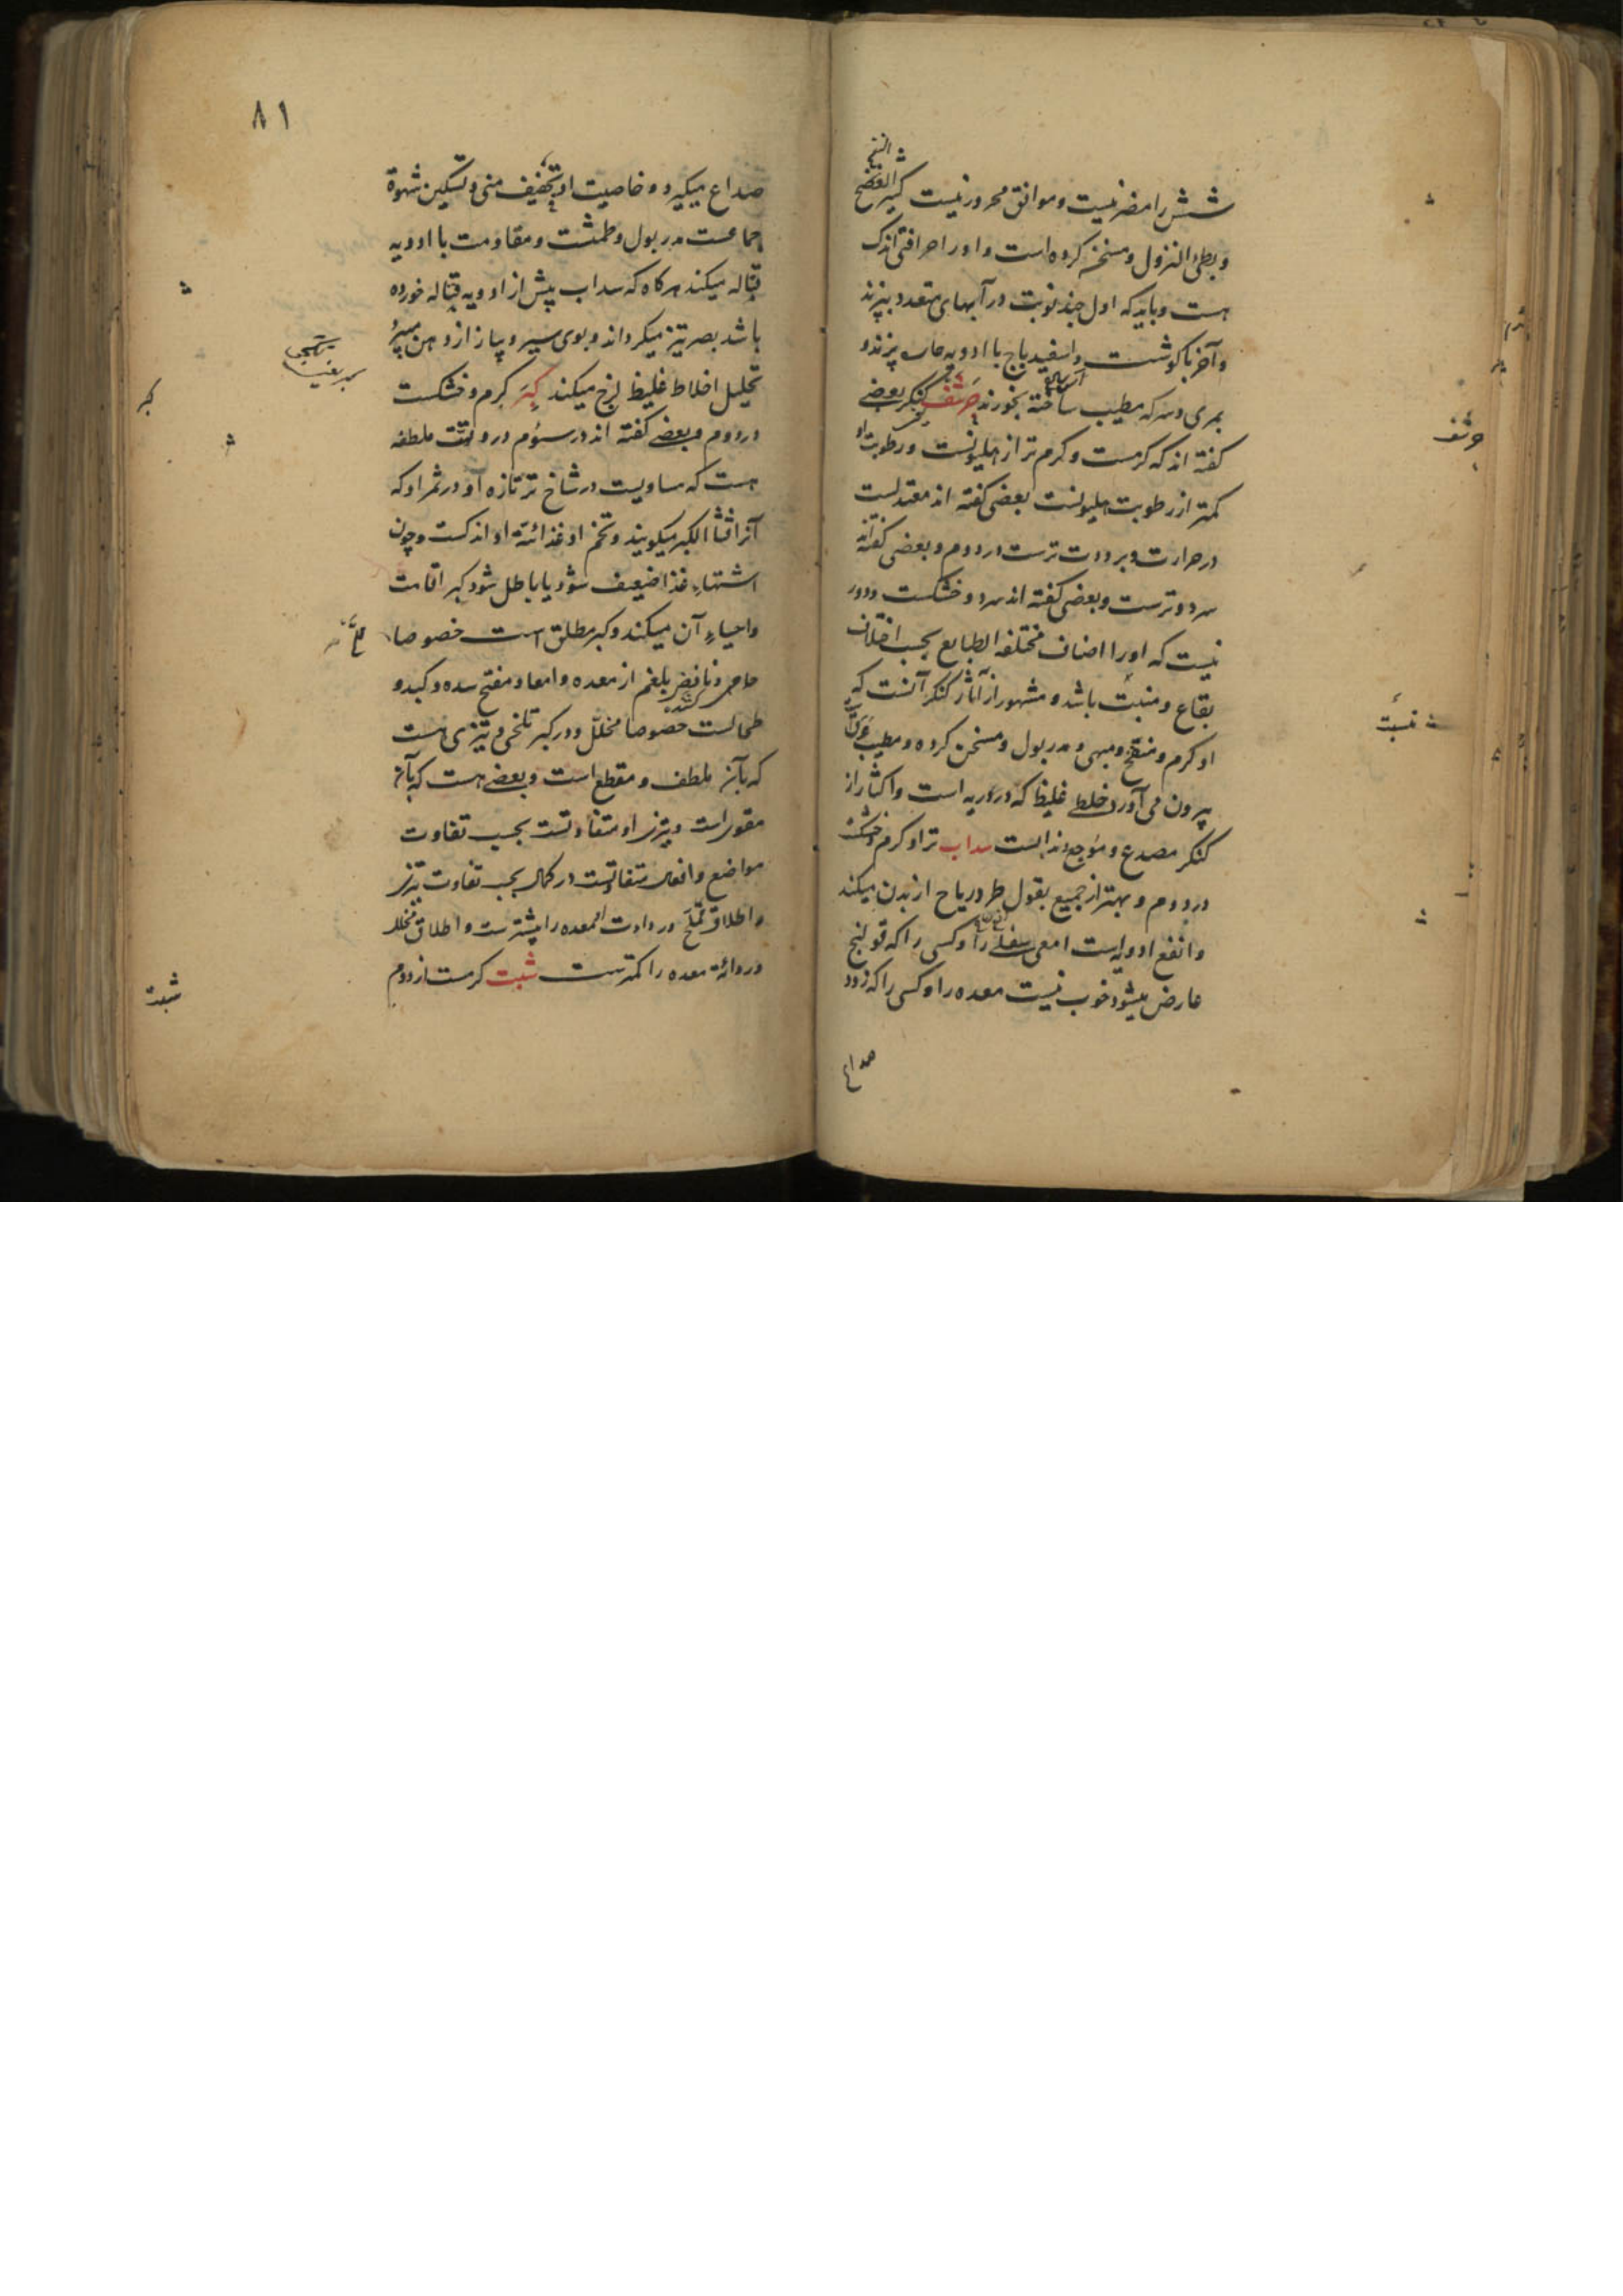 النفخ
شش را مضر نیست و موافق محرور نیست کثیر الفضخ
و بطی النزول و مسخن کرده است و اورا حرافتی اندک
هست و باید که اول چند نوبت در آبهای متعدد بپزند
و آخر با گوشت و اسفیدباج با ادویه حاره پزند و
بمری و سرکه مطیب ساخته بخورند حرشف کنگر بعضی
گفته اند که گرمست و گرم تر از هلیونست و رطوبت او
کمتر از رطوبت هلیونست بعضی گفته اند معتدلست
در حرارت و برودت ترست در دوم و بعضی گفته اند
سرد و ترست و بعضی گفته اند سرد و خشکست و دور
نیست که اورا اصناف مختلفه الطبایع بحسب اختلاف
بقاع و منبت باشد و مشهور از آثار کنگر آنست که
او گرم و منفخ و مبهی و مدر بول و مسخن کرده و مطیب عرق
بیرون می آورد خلطی غلیظ که در وریه است و اکثار از
کنگر مصدع و موجع دندانست سداب تر او گرم و خشکست
در دوم و بهتر از جمیع بقول طرد ریاح از بدن میکند
و انفع ادویه است امعی سفلی را و کسی را که قولنج
عارض میشود خوب نیست معده را و کسی را که زود
صداع
حرشف
منبت
۸۱
صداع میگیرد و خاصیت او تجفیف منی و تسکین شهوة
جماعست مدر بول و طمثست و مقاومت با ادویه
قتاله میکند هرکاه که سداب پیش از ادویه قتاله خورده
باشد بصر تیز میکرداند و بوی سیر و پیاز از دهن میبرد
تحلیل اخلاط غلیظ لزج میکند کبر گرم و خشکست
در دوم و بعضی گفته اند در سئوم در و قوت ملطفه
هست که مساویست در شاخ تر تازه او و در ثمر او که
آنرا قثاء الکبر میگویند و تخم او غذائیة او اندکست و چون
اشتهاء غذا ضعیف شود یا باطل شود کبر اقامت
واحیاء آن میکند و کبر مطلق است خصوصا
جاهر و نافض بلغم از معده و امعا و مفتح سده و کبد و
طحالست خصوصا مخلل و در کبر تلخی و تیزی هست
که بآن ملطف و مقطع است و بعضی هست که بآن
مقوی است و تیزی او متفاوتست بحسب تفاوت
مواضع و افعال متفاوتست در کمال بحسب تفاوت تیزی
و اطلاق مملح و رداءت المعده را بیشترست و اطلاق مخلل
و ردائة معده را کمترست شبت گرمست از دوم
کبر
شبت